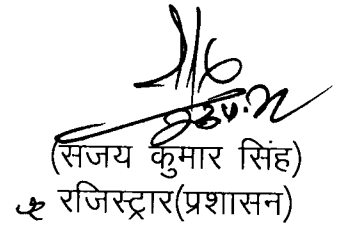 (संजय कुमार सिंह)
रजिस्ट्रार(प्रशासन)